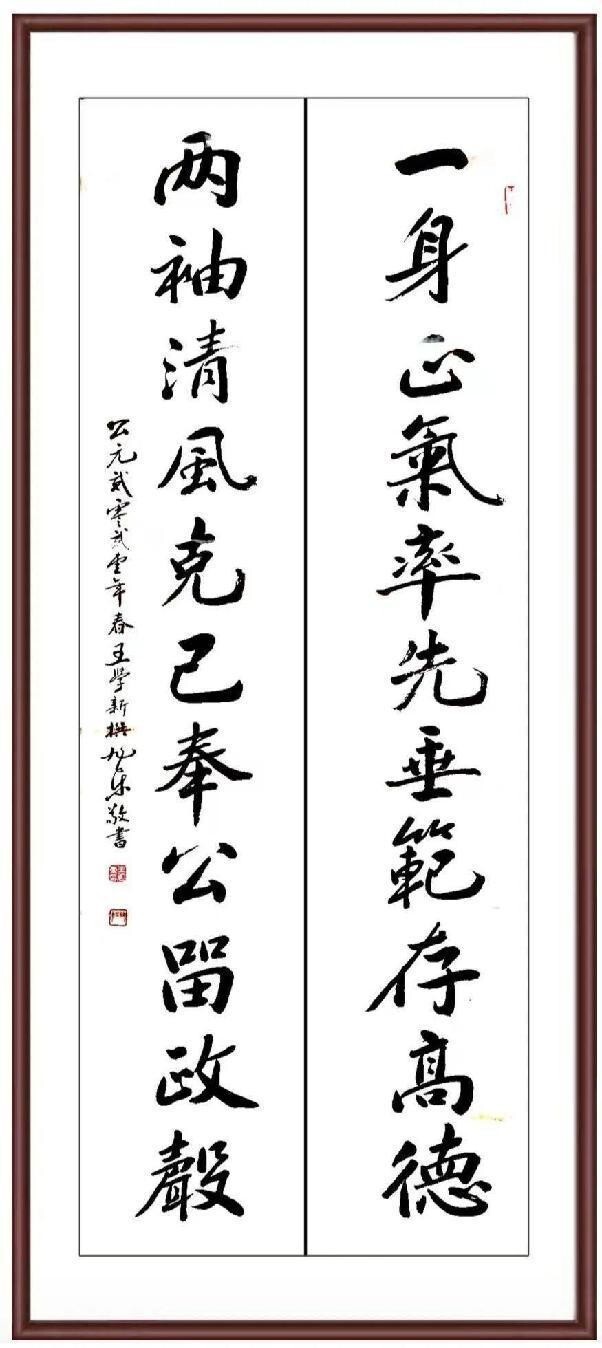 一身正氣率先垂範存高德
两袖清風克己奉公留政聲
公元贰零贰零年春王学新撰旭东敬書